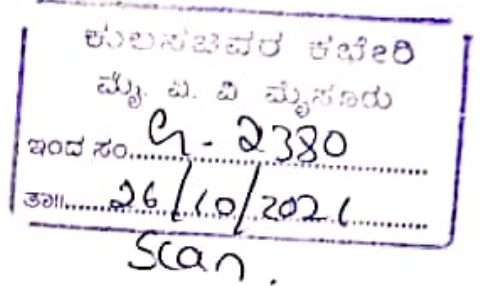 ಕುಲಸಚಿವರ ಕಚೇರಿ
ಮೈ. ವಿ. ವಿ ಮೈಸೂರು
ಇಂದ ಸಂ.....2380
ತಾ||.....26/10/2021.....
Scan.